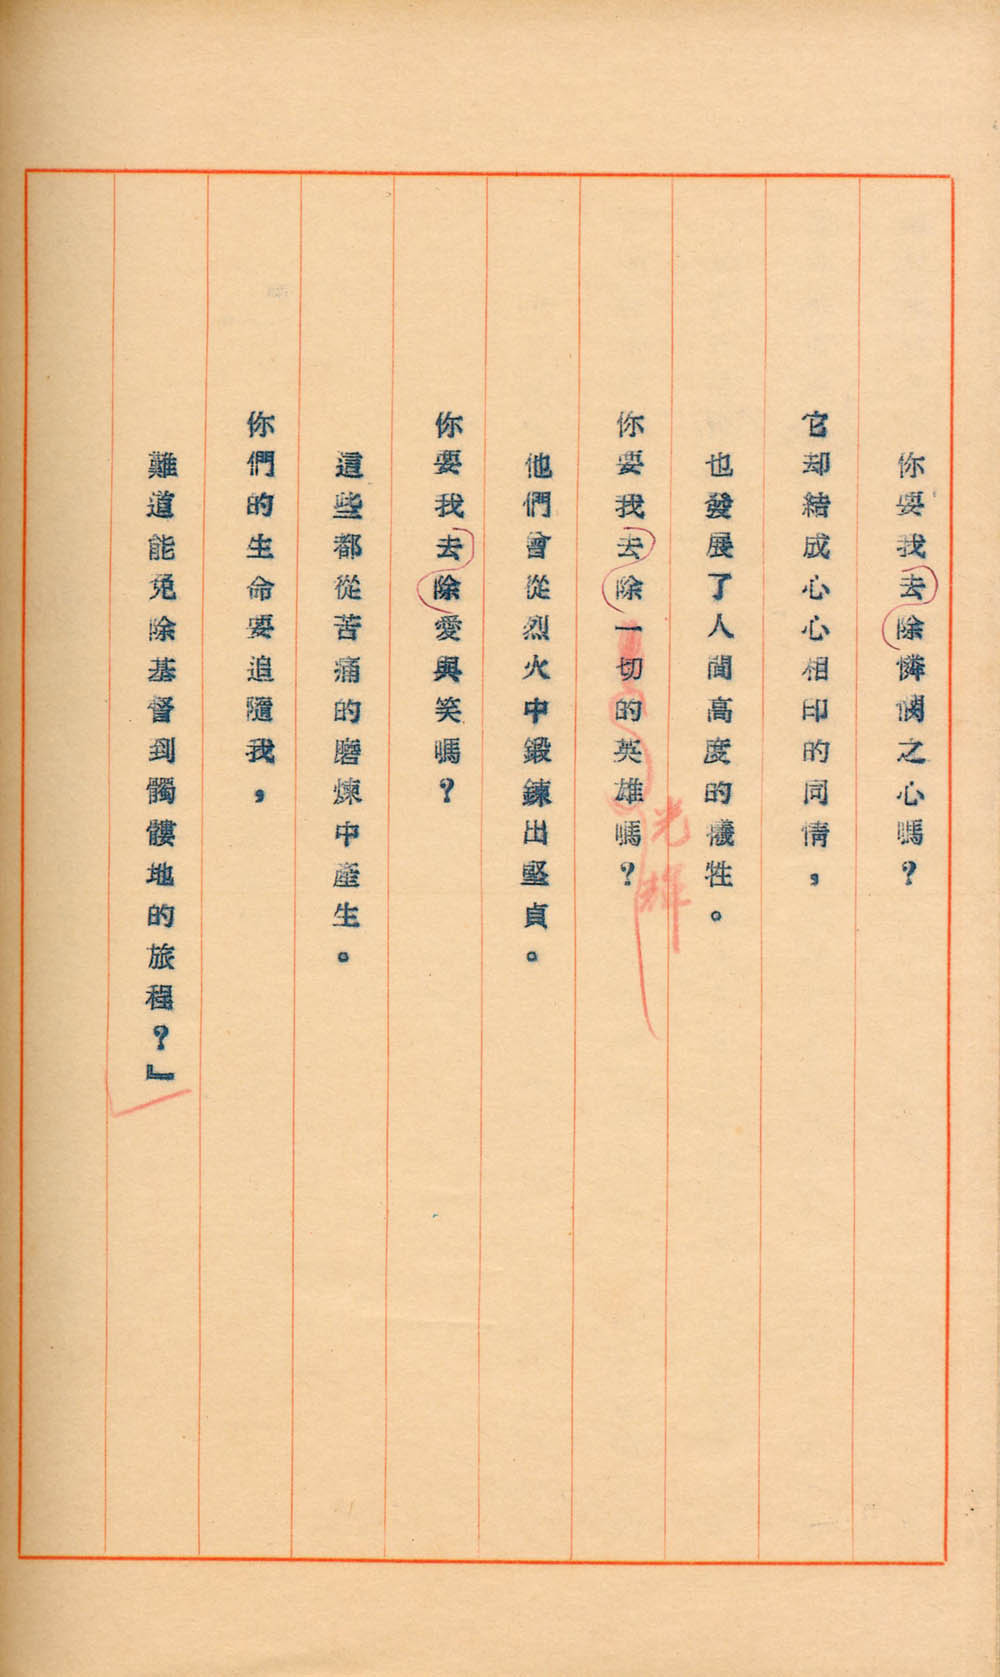 你要我去除憐憫之心嗎？
它却結成心心相印的同情，
也發展了人間高度的犧牲。
你要我去除一切的英雄嗎？
光輝
他們會從烈火中鍛鍊出堅貞。
你要我去除愛與笑嗎？
這些都從苦痛的磨煉中產生。
你們的生命要追隨我，
難道能免除基督到髑髏地的旅程？』